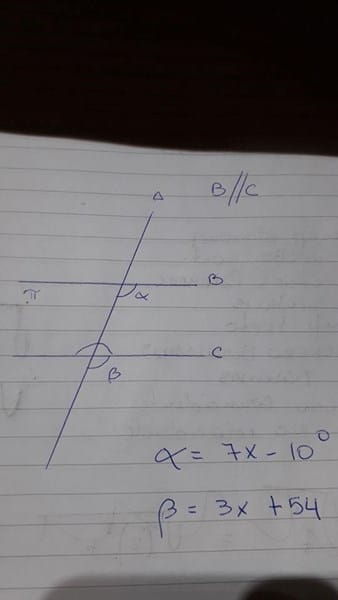 Δ
B//C
B
π
α
C
β
α = 7x - 10°
β = 3x + 54